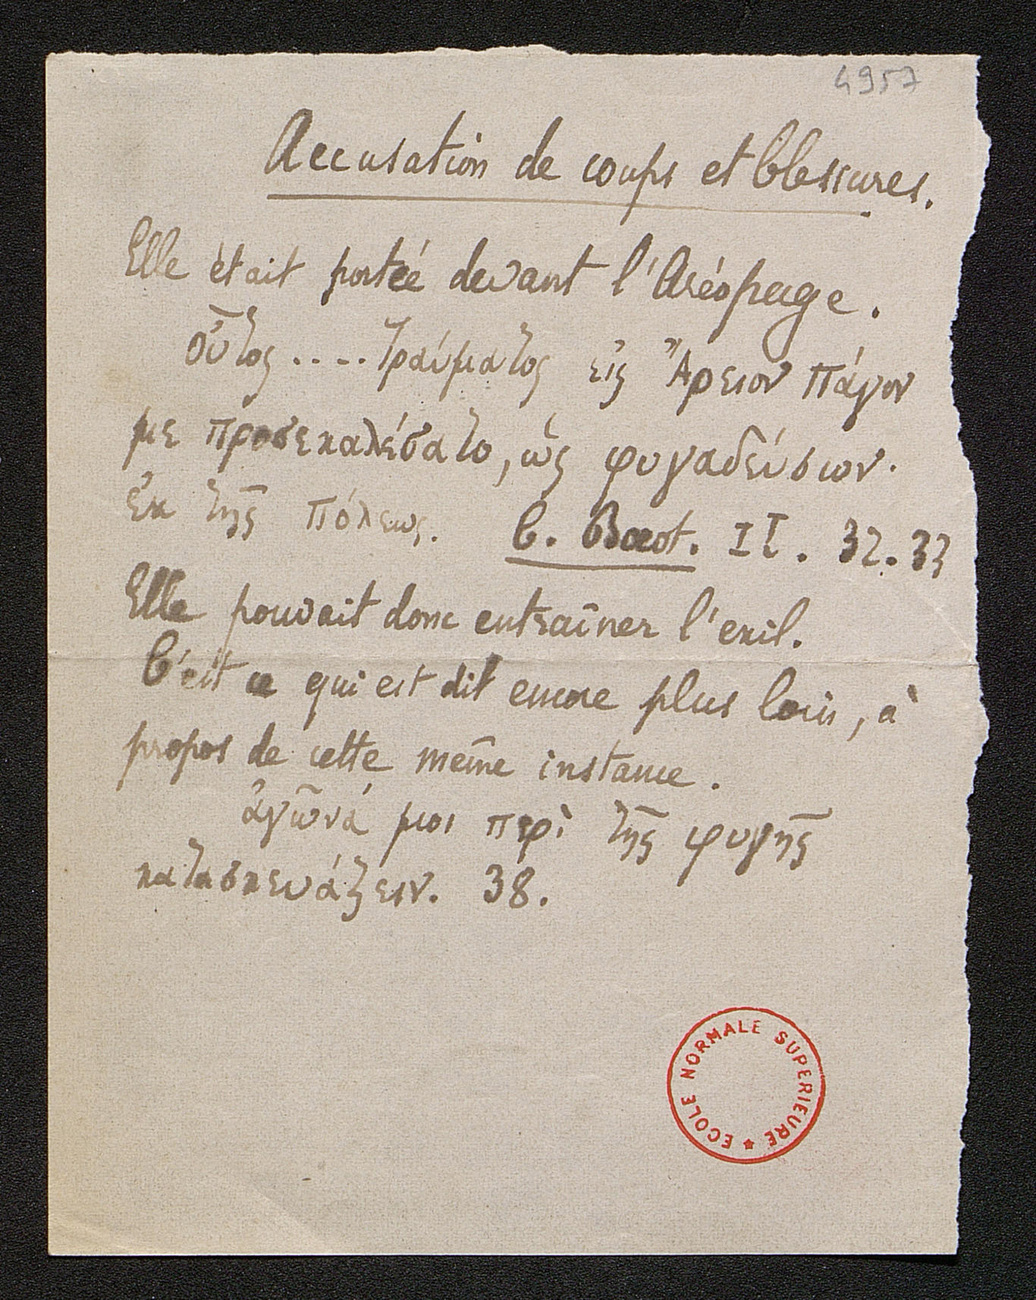 4957
Accusation de coups et blessures.
Elle était portée devant l'Aréopage.
οὗτος .... τραύματος εἰς Ἄρειον πάγον
με προσεκαλέσατο, ὡς φυγαδεύσων
ἐκ τῆς πόλεως. C. Bœot. II. 32.33
Elle pouvait donc entraîner l'exil.
C'est ce qui est dit encore plus loin, à
propos de cette même instance.
ἀγῶνά μοι περὶ τῆς φυγῆς
κατασκευάζειν. 38.
ECOLE NORMALE SUPERIEURE